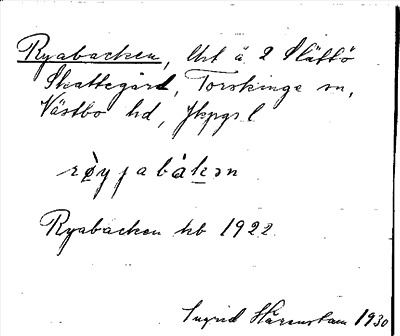 Ryabacken, Urt å 2 Slättö
Skattegård, Torskinge sn,
Västbo hd, Jkpgs l
røyjabàkən
Ryabacken kb 1922
Ingrid Härenstam 1930